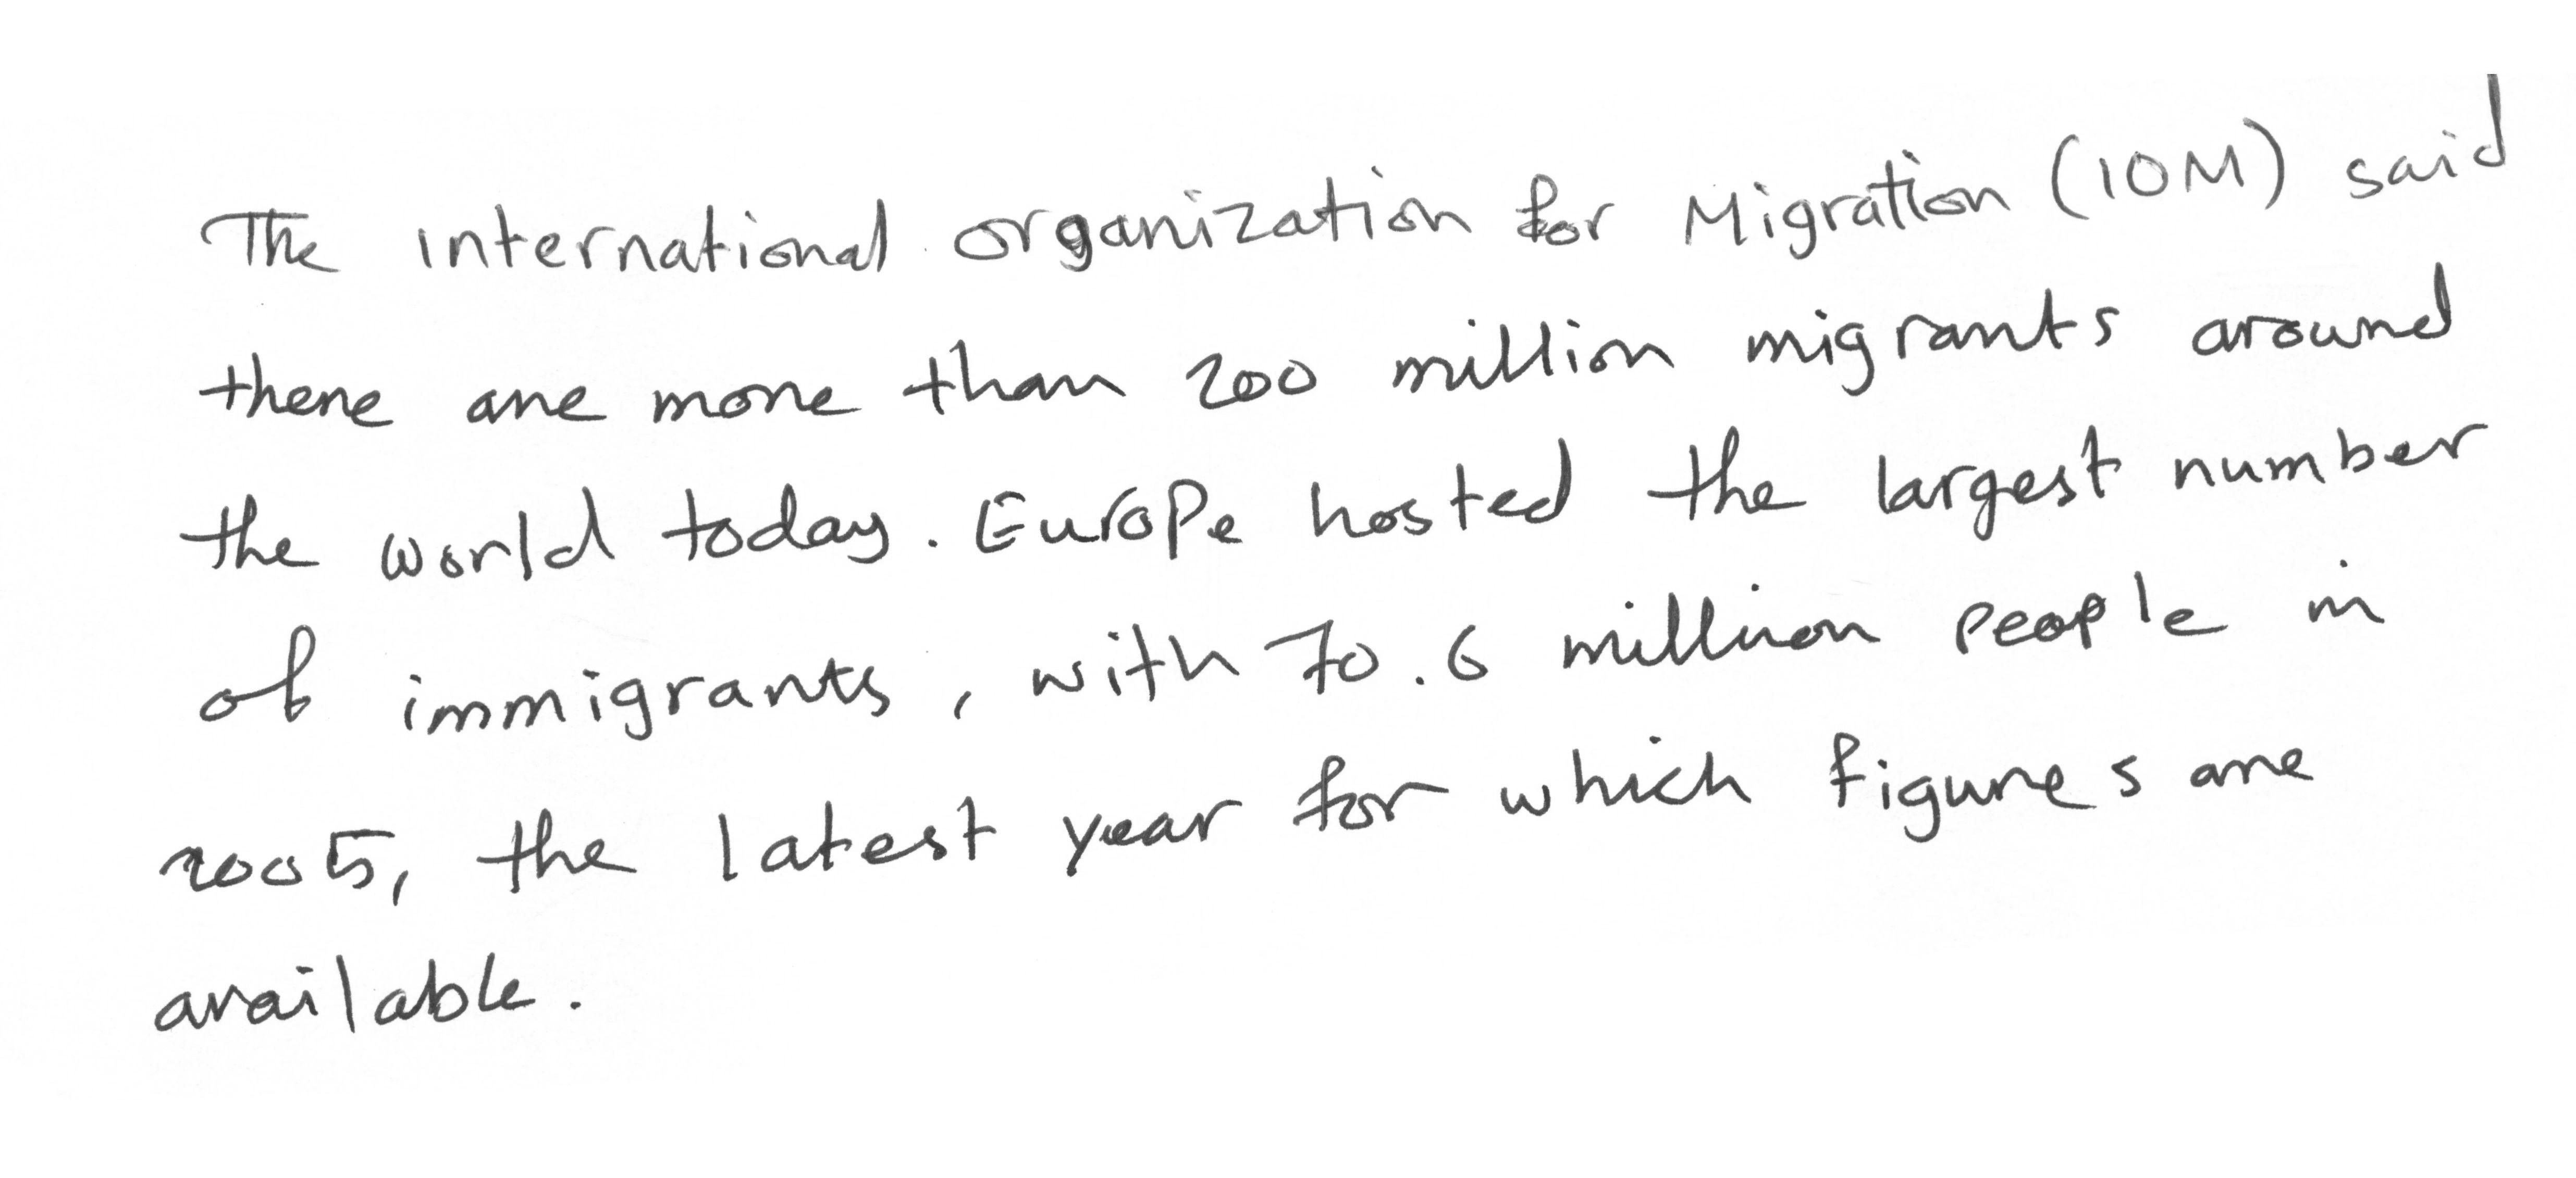 The international organization for Migration (IOM) said
there are more than 200 million migrants around
the world today. Europe hosted the largest number
of immigrants, with 70.6 million people in
2005, the latest year for which figures are
available.